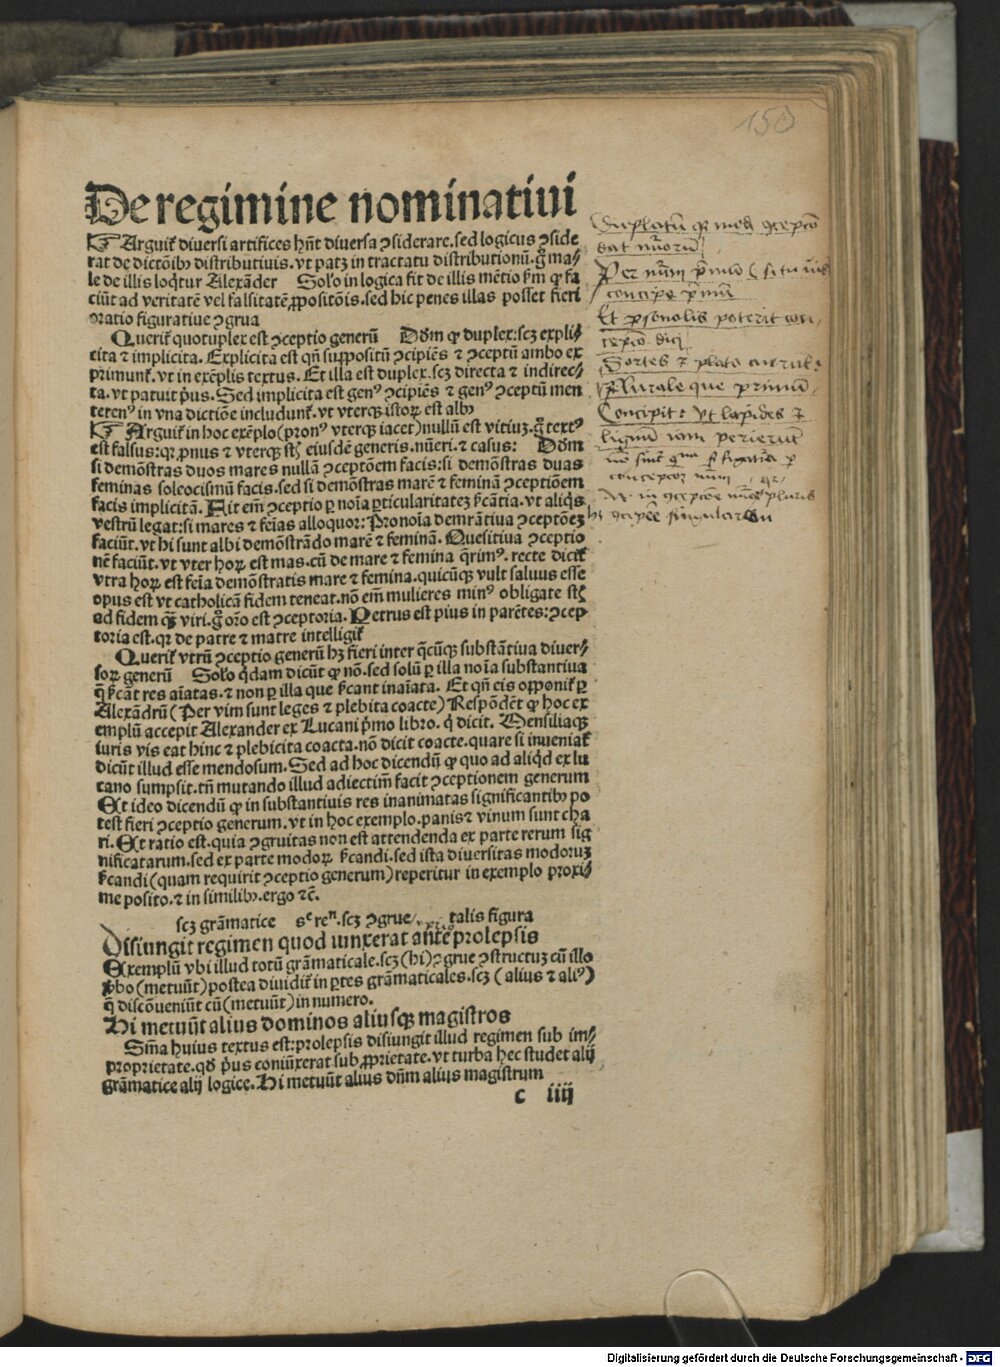 150
De regimine nominatiui
☞ Arguit̉ diuersi artifices hñt diuersa ꝯsiderare. sed logicus ꝯside
rat de dictõibꝰ distributiuis. vt patꝫ in tractatu distributionũ. g̃ ma⸗
le de illis loq̃tur Alexãder Solo in logica fit de illis mẽtio ẜm ꝙ fa
ciũt ad veritatẽ vel falsitatẽ ꝓpositõis. sed hic penes illas posset fieri
oratio figuratiue ꝯgrua
Querit̉ quotuplex est ꝯceptio generũ Dõm ꝙ duplex: scꝫ expli⸗
cita ⁊ implicita. Explicita est qñ suppositũ ꝯcipiẽs ⁊ ꝯceptũ ambo ex
primunt̉. vt in exẽplis textus. Et illa est duplex. scꝫ directa ⁊ indirec⸗
ta. vt patuit p̃us. Sed implicita est genꝰ ꝯcipiẽs ⁊ genꝰ ꝯceptũ men
tetenꝰ in vna dictiõe includunt̉. vt vterqꝫ istoꝝ est albꝰ
☞ Arguit̉ in hoc exẽplo (pronꝰ vterqꝫ iacet) nullũ est vitiuꝫ. g̃ textꝰ
est falsus: qꝛ ꝓnus ⁊ vterqꝫ st̃ eiusdẽ generis. nũeri. ⁊ casus: Dõm
si demõstras duos mares nullã ꝯceptõem facis: si demõstras duas
feminas soleocismũ facis. sed si demõstras marẽ ⁊ feminã ꝯceptiõem
facis implicitã. Fit em̃ ꝯceptio ꝑ noĩa ꝑticularitateꝫ ẜcãtia. vt aliq̃s
vestrũ legat: si mares ⁊ feĩas alloquor: Pronoĩa demrãtiua ꝯceptõeꝫ
faciũt. vt hi sunt albi demõstrãdo marẽ ⁊ feminã. Quesitiua ꝯceptio
nẽ faciũt. vt vter hoꝝ est mas. cũ de mare ⁊ femina q̃rimꝰ. recte dicit̉
vtra hoꝝ est feĩa demõstratis mare ⁊ femina. quicũqꝫ vult saluus esse
opus est vt catholicã fidem teneat. nõ em̃ mulieres minꝰ obligate st̃
ad fidem q̃ꝫ viri. g̃ orõ est ꝯceptoria. Petrus est pius in parẽtes: ꝯcep
toria est. qꝛ de patre ⁊ matre intelligit̉
Querit̉ vtrũ ꝯceptio generũ hꝫ fieri inter q̃cũqꝫ substãtiua diuer⸗
soꝝ generũ Solo q̃dam dicũt ꝙ nõ. sed solũ ꝑ illa noĩa substantiua
q̃ ẜcãt res aĩatas. ⁊ non ꝑ illa que ẜcant inaĩata. Et qñ eis opponit̉ ꝑ
Alexãdrũ (Per vim sunt leges ⁊ plebita coacte) Respõdẽt ꝙ hoc ex
emplũ accepit Alexander ex Lucani p̃mo libro. q̃ dicit. Mensiliaqꝫ
iuris vis eat hinc ⁊ plebicita coacta. nõ dicit coacte. quare si inueniat̉
dicũt illud esse mendosum. Sed ad hoc dicendũ ꝙ quo ad aliq̃d ex lu
cano sumpsit. tñ mutando illud adiectim̃ facit ꝯceptionem generum
Et ideo dicendũ ꝙ in substantiuis res inanimatas significantibꝰ po
test fieri ꝯceptio generum. vt in hoc exemplo. panis ⁊ vinum sunt cha
ri. Et ratio est. quia ꝯgruitas non est attendenda ex parte rerum sig
nificatarum. sed ex parte modoꝝ ẜcandi. sed ista diuersitas modoruꝫ
ẜcandi (quam requirit ꝯceptio generum) reperitur in exemplo proxi⸗
me posito. ⁊ in similibꝰ. ergo ⁊c̃.
scꝫ grãmatice sᶜ reⁿ. scꝫ ꝯgrue talis figura
Disiungit regimen quod iunxerat ante prolepsis
Exemplũ vbi illud totũ grãmaticale. scꝫ (hi) ꝯgrue ꝯstructuꝫ cũ illo
v̾bo (metuũt) postea diuidit̉ in ꝑtes grãmaticales. scꝫ (alius ⁊ aliꝰ)
q̃ discõueniũt cũ (metuũt) in numero.
Hi metuũt alius dominos aliusqꝫ magistros
Sm̃a huius textus est: prolepsis disiungit illud regimen sub im⸗
proprietate. qđ p̃us coniũxerat sub ꝓprietate. vt turba hec studet alij
grãmatice alij logice. Hi metuũt alius dñm alius magistrum
c iiij
dat nũorũ
Per nũm primũ
concipe primũ
Et personalis poterit con⸗
ceptio dici
Sortes ⁊ plato currũt.
Plurale que primũ
Concipit: Vt lapides ⁊
lignũ iam perierũt
singularem
Digitalisierung gefördert durch die Deutsche Forschungsgemeinschaft - DFG